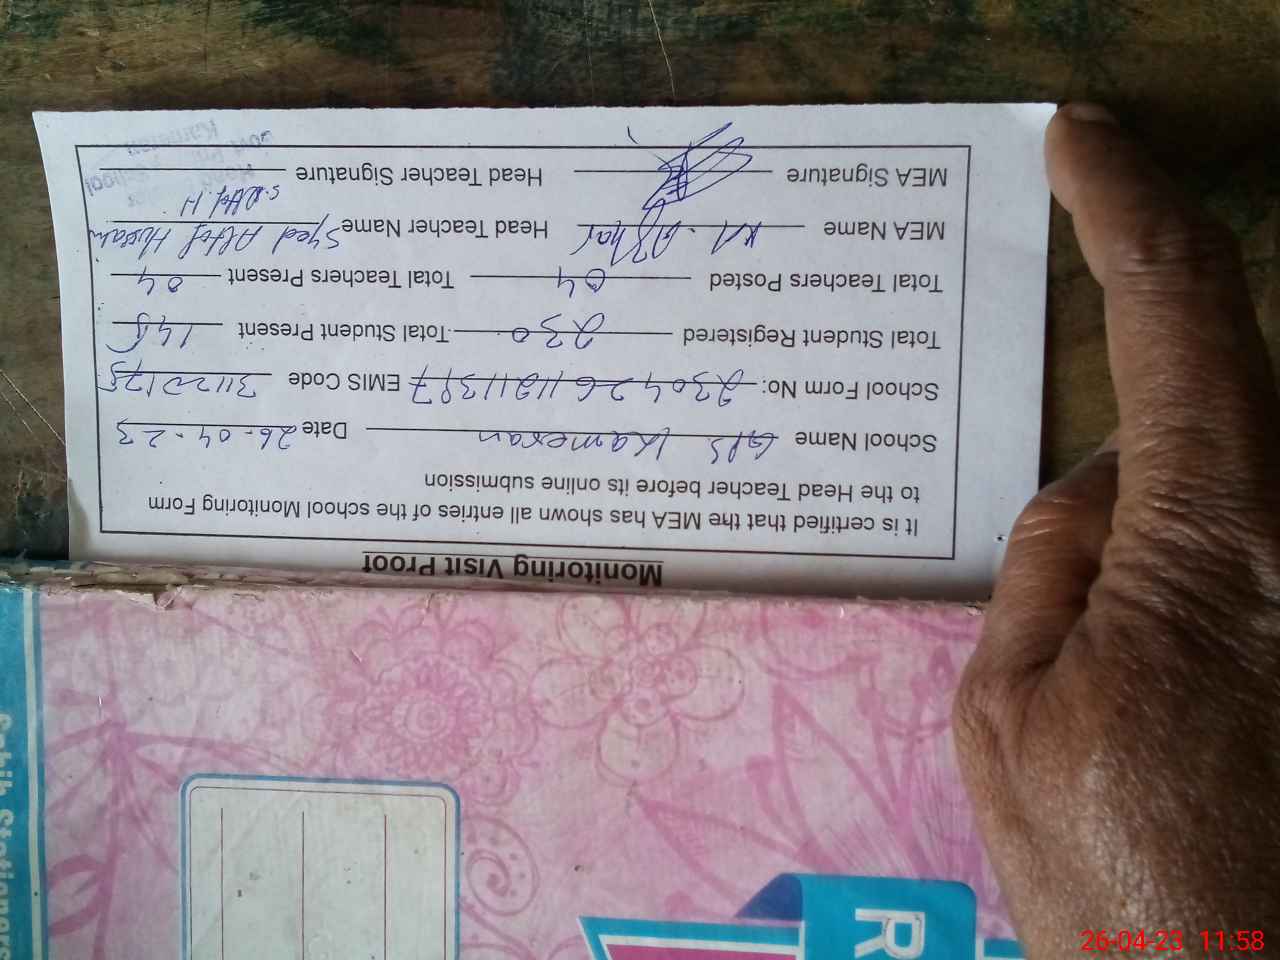 Monitoring Visit Proof
It is certified that the MEA has shown all entries of the school Monitoring Form
to the Head Teacher before its online submission
School Name GPS Kameran Date 26-04-23
School Form No: 230426112111397 EMIS Code 31120175
Total Student Registered 230 Total Student Present 145
Total Teachers Posted 04 Total Teachers Present 04
MEA Name M. Azhar Head Teacher Name Syed Altaf Hussain
MEA Signature Head Teacher Signature S. Altaf H
Sahib Stationers
R
26-04-23 11:58